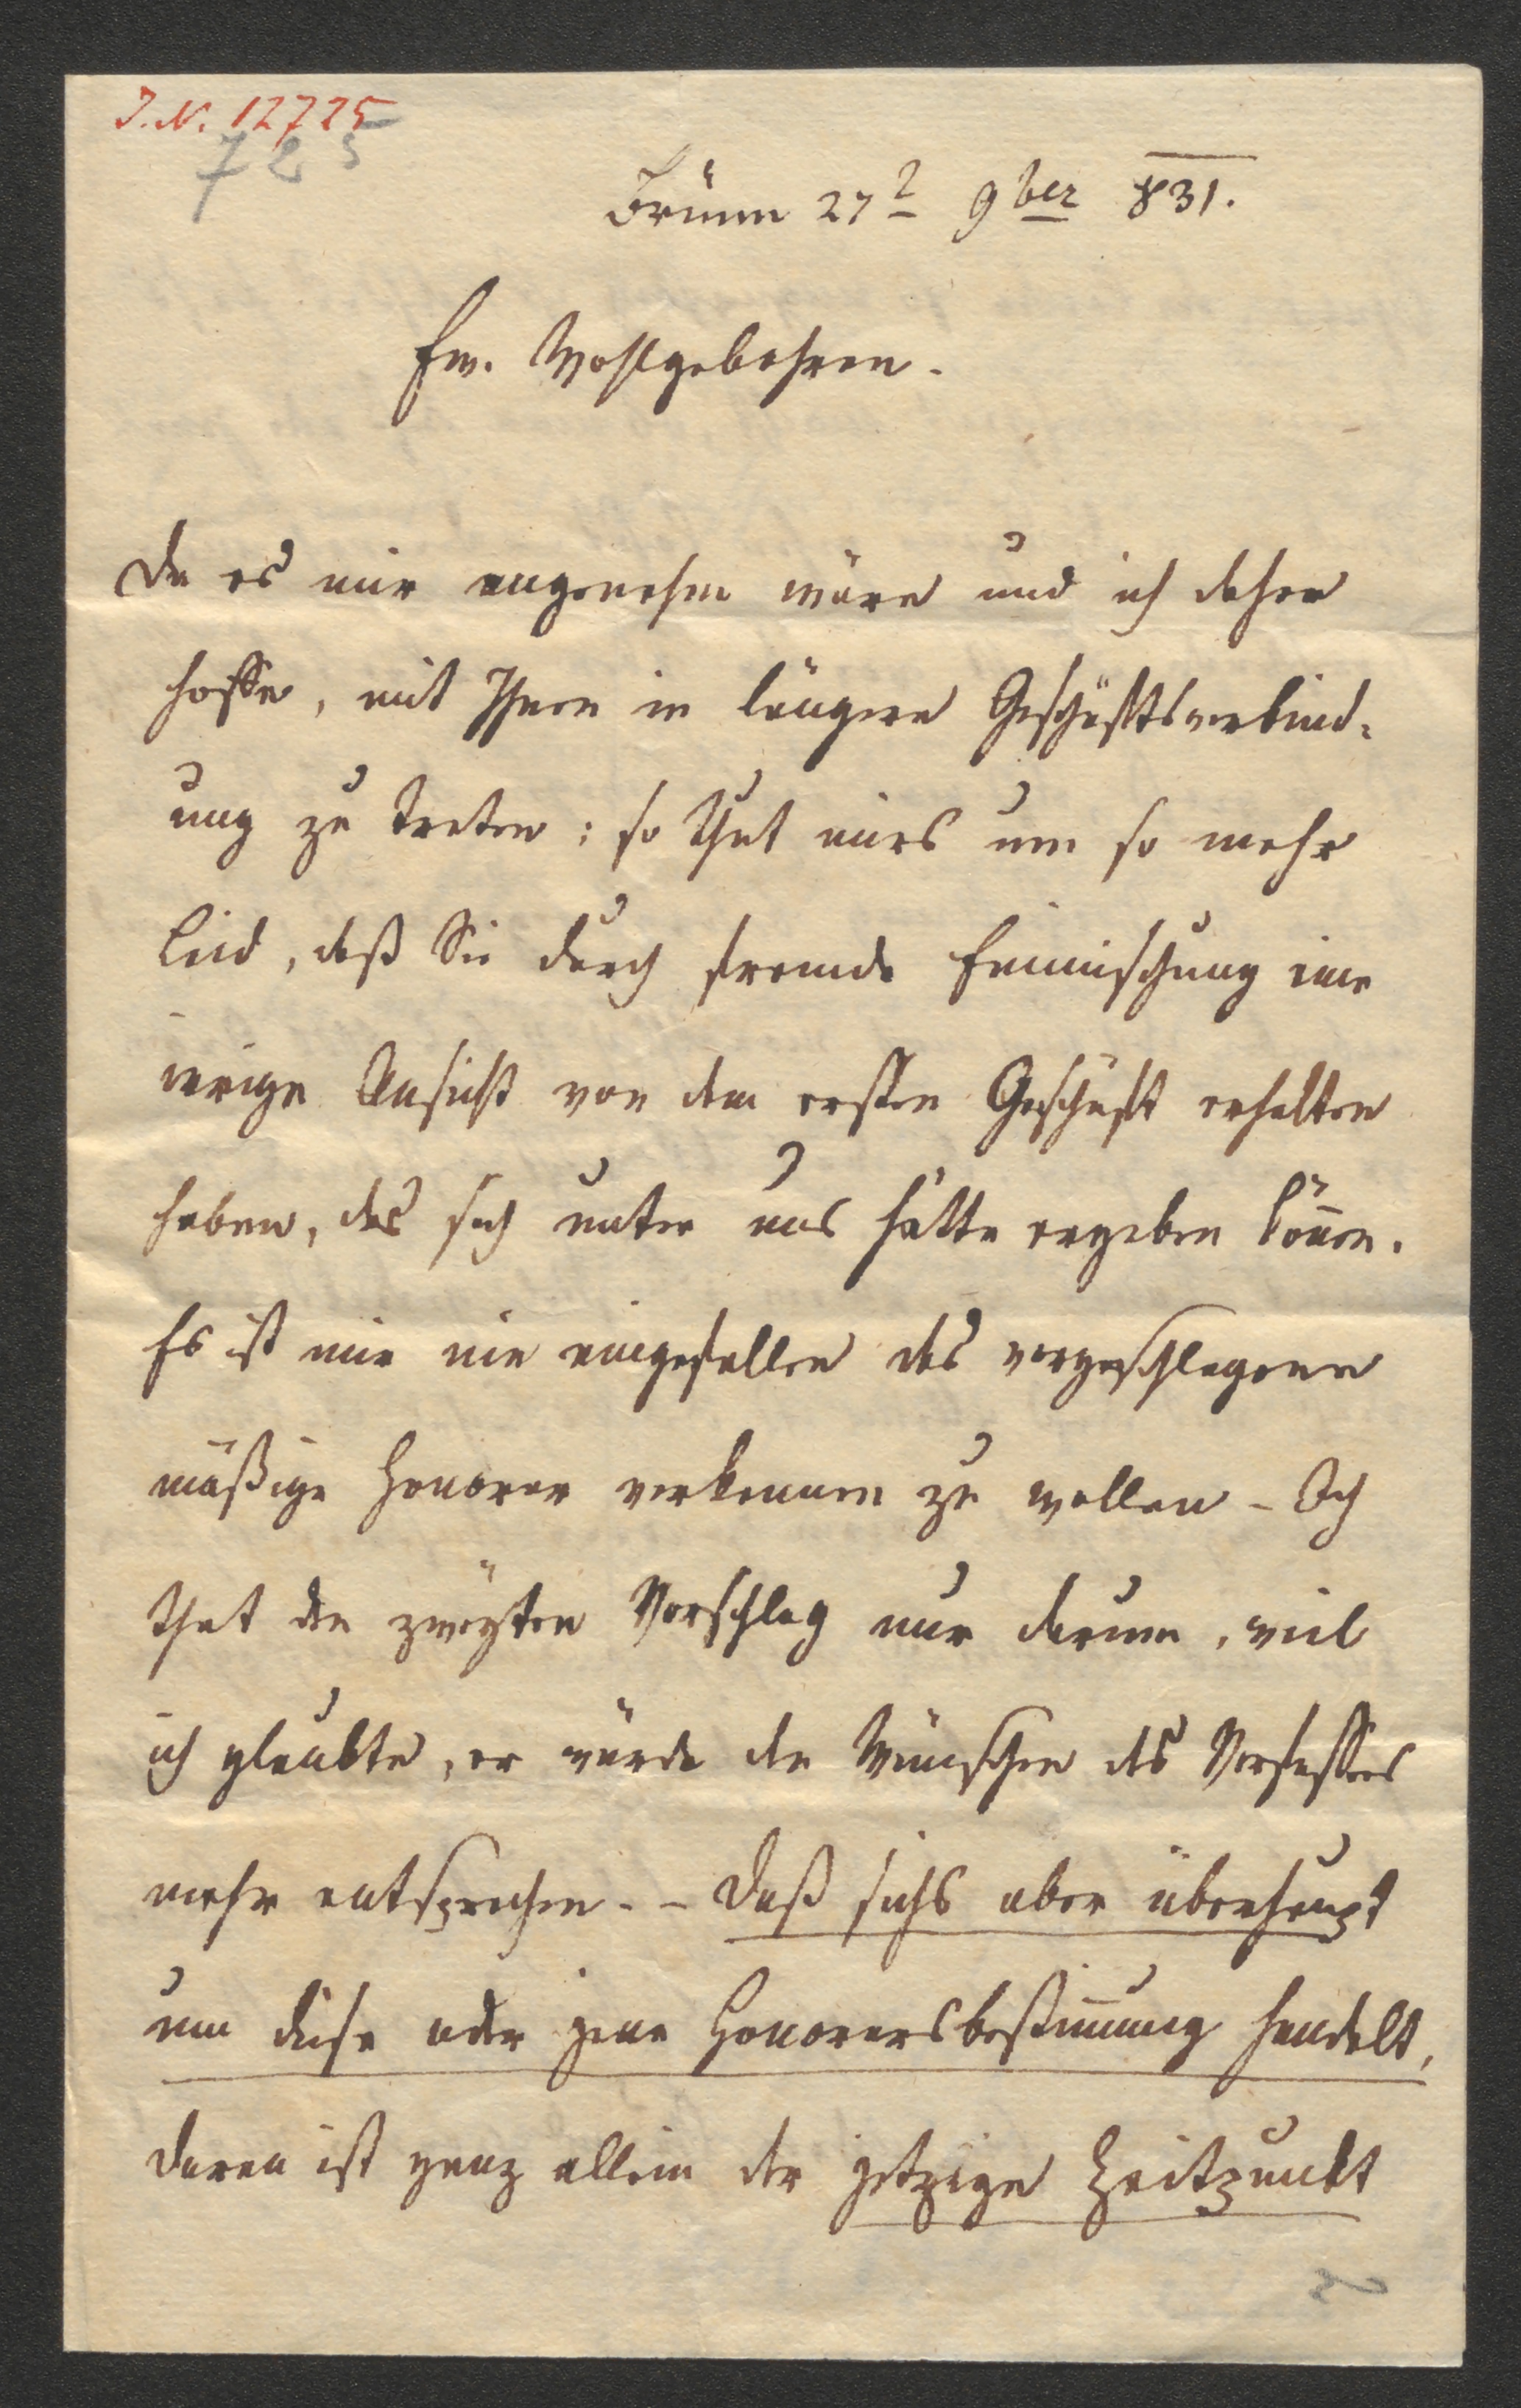 J.N. 12725
725
Brünn 27t 9ber 831.
Ew. Wohlgebohren.
Da es mir angenehm wäre und ich daher
hoffe, mit Ihnen in längere Geschäftsverbind-
ung zu treten; so thut mirs um so mehr
Leid, daß Sie durch fremde Einmischung eine
irrige Ansicht von dem ersten Geschäft erhalten
haben, das sich unter uns hätte ergeben können.
Es ist mir nie eingefallen das vorgeschlagene
mäßige Honorar verkennen zu wollen – Ich
that den zweyten Vorschlag nur darum, weil
ich glaubte, er würde den Wünschen des Verfassers
mehr entsprechen. – Daß sichs aber überhaupt
um diese oder jene Honorarsbestimmung handelt,
daran ist ganz allein der jetzige Zeitpunkt